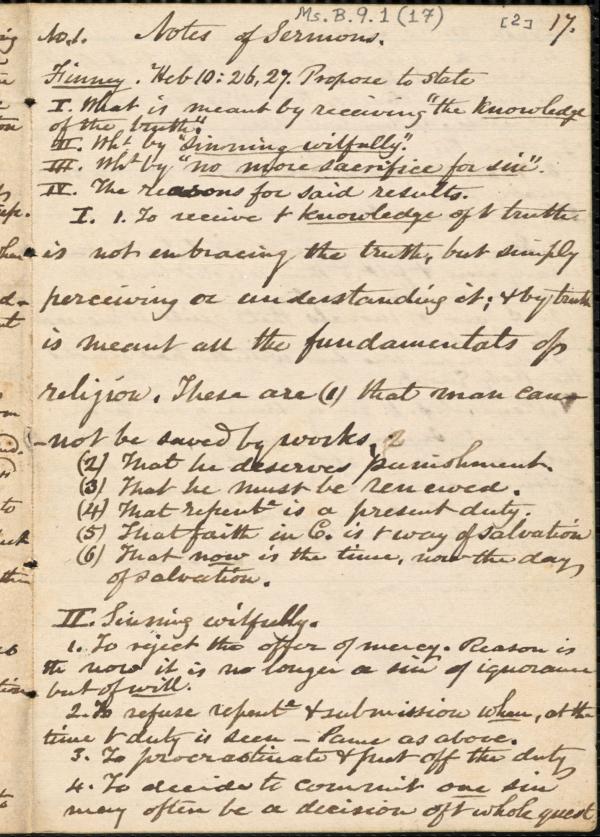 Ms. B. 9. 1 (17) [2] 17.
No. 1. Notes of Sermons.
Finney. Heb 10:26,27. Propose to state
I. What is meant by receiving "the knowledge
of the truth."
II. Wht by "Sinning wilfully".
III. Wht by "no more sacrifice for sin".
IV. The reasons for said results.
I. 1. To receive t knowledge of t truth
is not embracing the truth, but simply
perceiving or understanding it; & by truth
is meant all the fundamentals of
religion. These are (1) that man can-
-not be saved by works.
(2) That he deserves punishment.
(3) That he must be renewed.
(4) That repentce is a present duty.
(5) That faith in C. is t way of salvation
(6) That now is the time, now the day
of salvation.
II. Sinning wilfully.
1. To reject the offer of mercy. Reason is
tht now it is no longer a sin of ignorance
but of will.
2. To refuse repentce & submission when, at the
time t duty is seen - same as above.
3. To procrastinate & put off the duty
4. To decide to commit one sin
may often be a decision of t whole quest